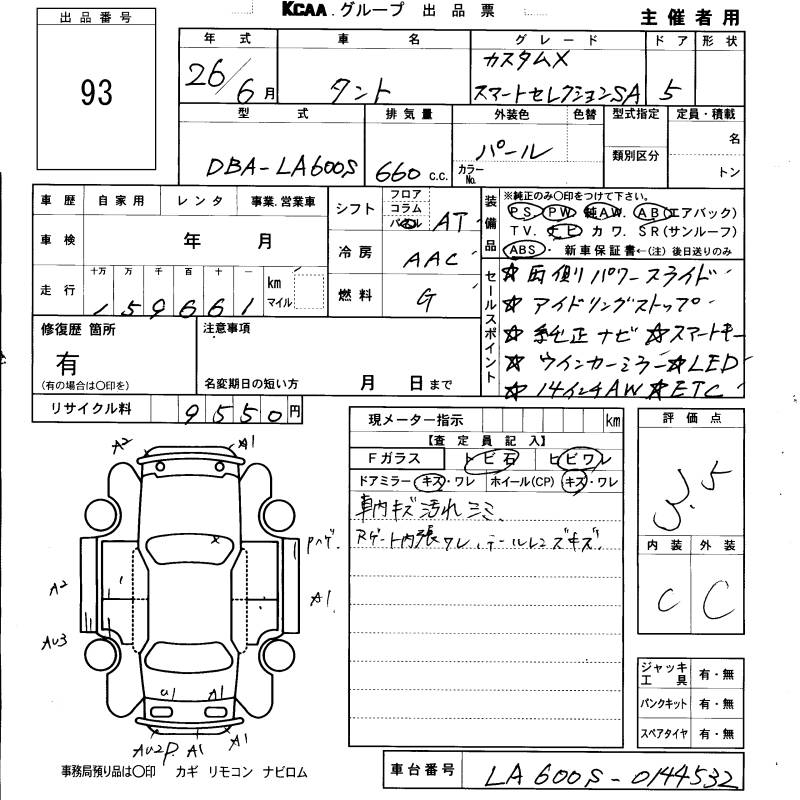 KCAA.グループ 出品票
主催者用
出品番号
93
年式 車名 グレード ドア 形状
26/6月 タント カスタムX スマートセレクションSA 5
型式 排気量 外装色 色替 型式指定 定員・積載
DBA-LA600S 660 c.c. パール カラーNo. 類別区分 名 トン
車歴 自家用 レンタ 事業.営業車
車検 年 月
走行 十万 万 千 百 十 km マイル
1 5 9 6 6 1
シフト フロア コラム パネル AT
冷房 AAC
燃料 G
装備品 ※純正のみ〇印をつけて下さい。
PS PW 純AW. AB(エアバック)
TV. ナビ カワ. SR(サンルーフ)
ABS・ 新車保証書←(注) 後日送りのみ
セールスポイント
☆両側パワースライド
☆アイドリングストップ
☆純正ナビ ☆スマートキー
☆ウインカーミラー ☆LED
☆14インチAW ☆ETC
修復歴 箇所
有
(有の場合は〇印を)
注意事項
名変期日の短い方 月 日まで
リサイクル料 9550円
現メーター指示 km
【査定員記入】
Fガラス トビ石 ヒビワレ
ドアミラー キズ・ワレ ホイール(CP) キズ・ワレ
車内キズ汚れシミ
Rゲート内張ワレ、テールレンズキズ
評価点
3.5
内装 外装
C C
A2 A1
x
Pハゲ.
A2 A1
AU3
U1 A1
AU2P. A1 A1
ジャッキ工具 有・無
パンクキット 有・無
スペアタイヤ 有・無
事務局預り品は〇印 カギ リモコン ナビロム
車台番号 LA600S-0144532